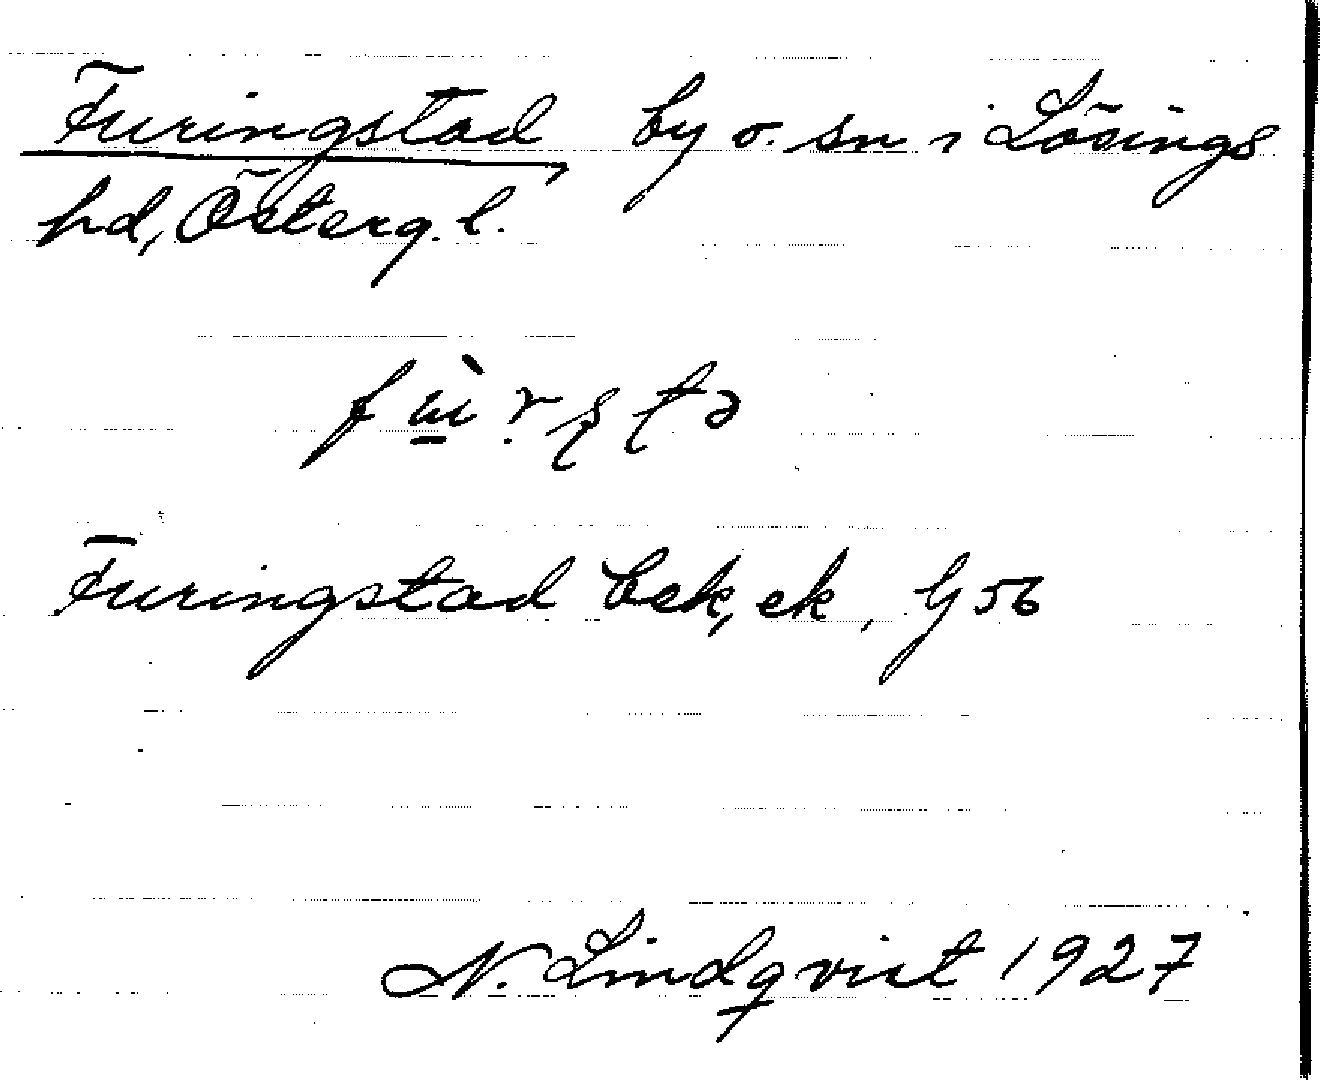 Furingstad, by o. sn i Lösings
hd, Österg. l.
Furingstad bek, ek, Gj 56
N. Lindqvist 1927